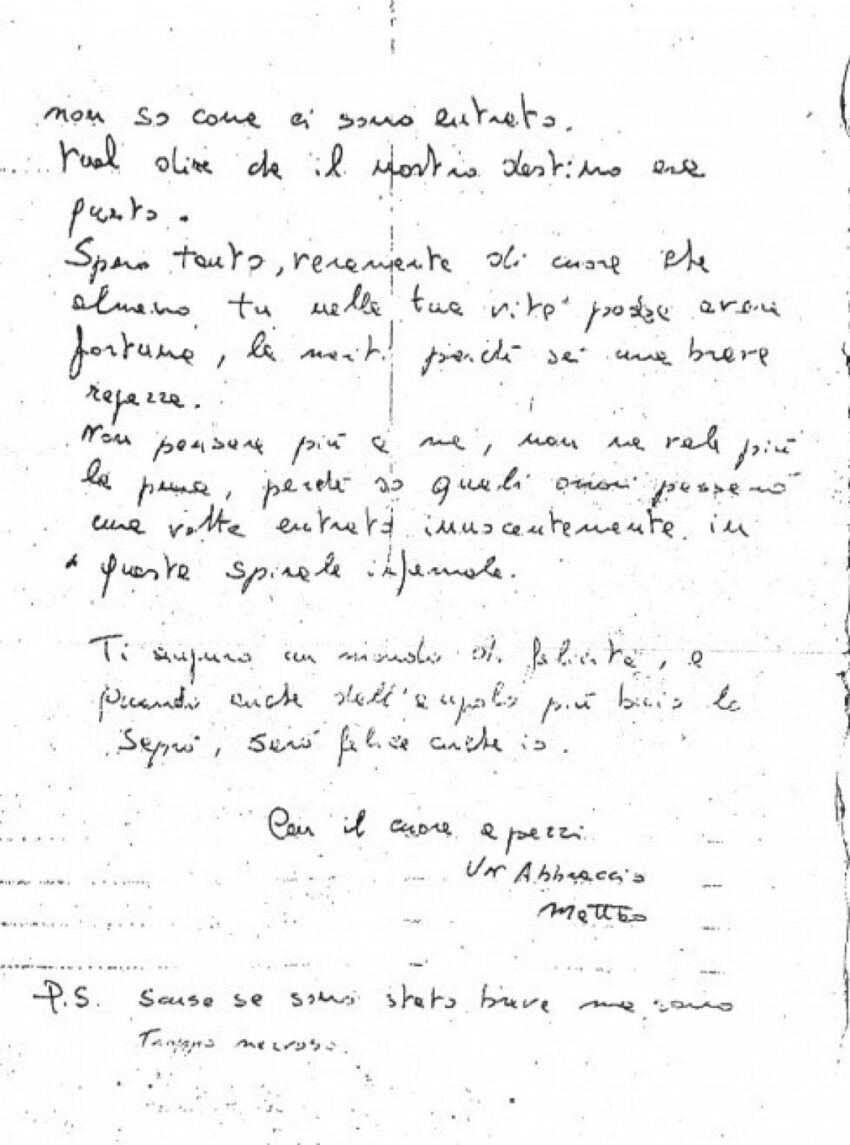 non so come ci sono entrato.
Vuol dire che il nostro destino era
questo.
Spero tanto, veramente di cuore che
almeno tu nella tua vita possa avere
fortuna, la meriti perché sei una brava
ragazza.
Non pensare più a me, non ne vale più
la pena, perché so quali orrori passerò
una volta entrato innocentemente in
questa spirale infernale.
Ti auguro un mondo di felicità, e
quando anche dall'angolo più buio lo
saprò, sarò felice anche io.
Con il cuore a pezzi
Un Abbraccio
Matteo
P.S. Scusa se sono stato breve ma sono
Troppo nervoso.